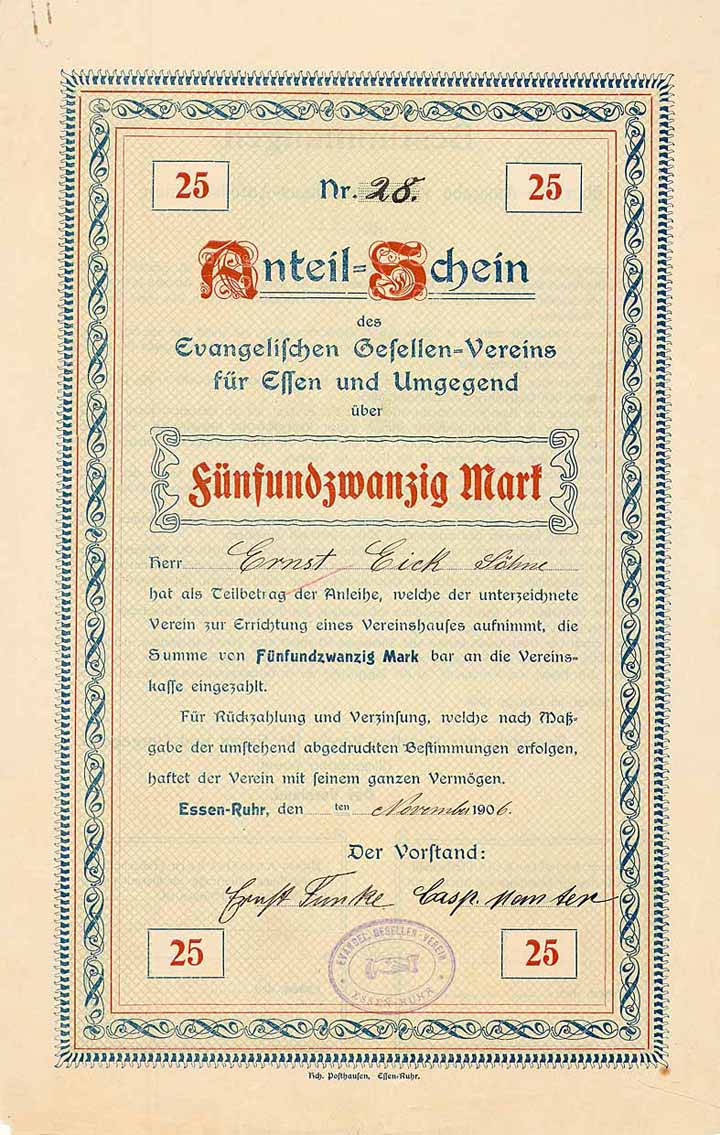 25 Nr. 28. 25
Anteil=Schein
des
Evangelischen Gesellen=Vereins
für Essen und Umgegend
über
Fünfundzwanzig Mark
Herr Ernst Eick Söhne
hat als Teilbetrag der Anleihe, welche der unterzeichnete
Verein zur Errichtung eines Vereinshauses aufnimmt, die
Summe von Fünfundzwanzig Mark bar an die Vereins-
kasse eingezahlt.
Für Rückzahlung und Verzinsung, welche nach Maß-
gabe der umstehend abgedruckten Bestimmungen erfolgen,
haftet der Verein mit seinem ganzen Vermögen.
Essen-Ruhr, den ten November 1906.
Der Vorstand:
Ernst Funke Casp.
25 25
EVANGEL. GESELLEN-VEREIN
ESSEN-RUHR
Hch. Posthausen, Essen-Ruhr.